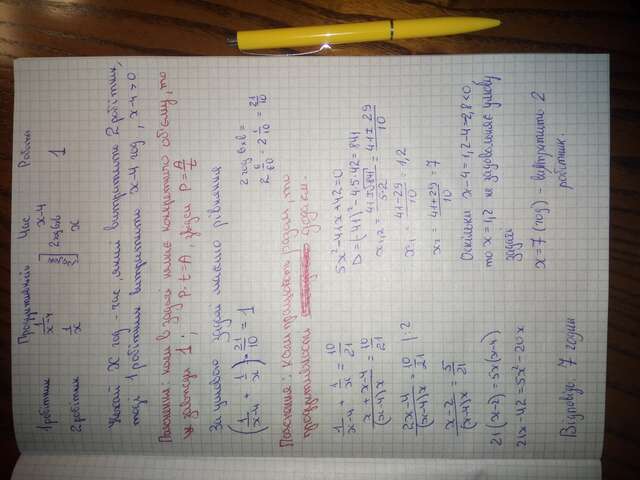 Продуктивність Час Робота
1 робітник 1/(x-4) x-4
2 год 6 хв 1
2 робітник 1/x x
Нехай x год - час, який витратить 2 робітник,
тоді 1 робітник витратить x-4 год, x-4>0
Пояснення: коли в задачі немає конкретного об'єму, то
це завжди 1; P·t=A, звідси P=A/t
За умовою задачі маємо рівняння
(1/(x-4) + 1/x)·21/10 = 1
2 год 6 хв =
2 6/60 = 2 1/10 = 21/10
Пояснення: коли працюють разом, то
продуктивності додаєм.
1/(x-4) + 1/x = 10/21
(x+x-4)/((x-4)x) = 10/21
(2x-4)/((x-4)x) = 10/21 |:2
(x-2)/((x-4)x) = 5/21
21(x-2)=5x(x-4)
21x-42=5x²-20x
5x²-41x+42=0
D=(-41)²-4·5·42=841
x₁,₂=(41±√841)/(5·2)=(41±29)/10
x₁=(41-29)/10=1,2
x₂=(41+29)/10=7
Оскільки x-4=1,2-4=-2,8<0,
то x=1,2 не задовольняє умову
задачі
x=7 (год) - витратить 2
робітник.
Відповідь: 7 годин